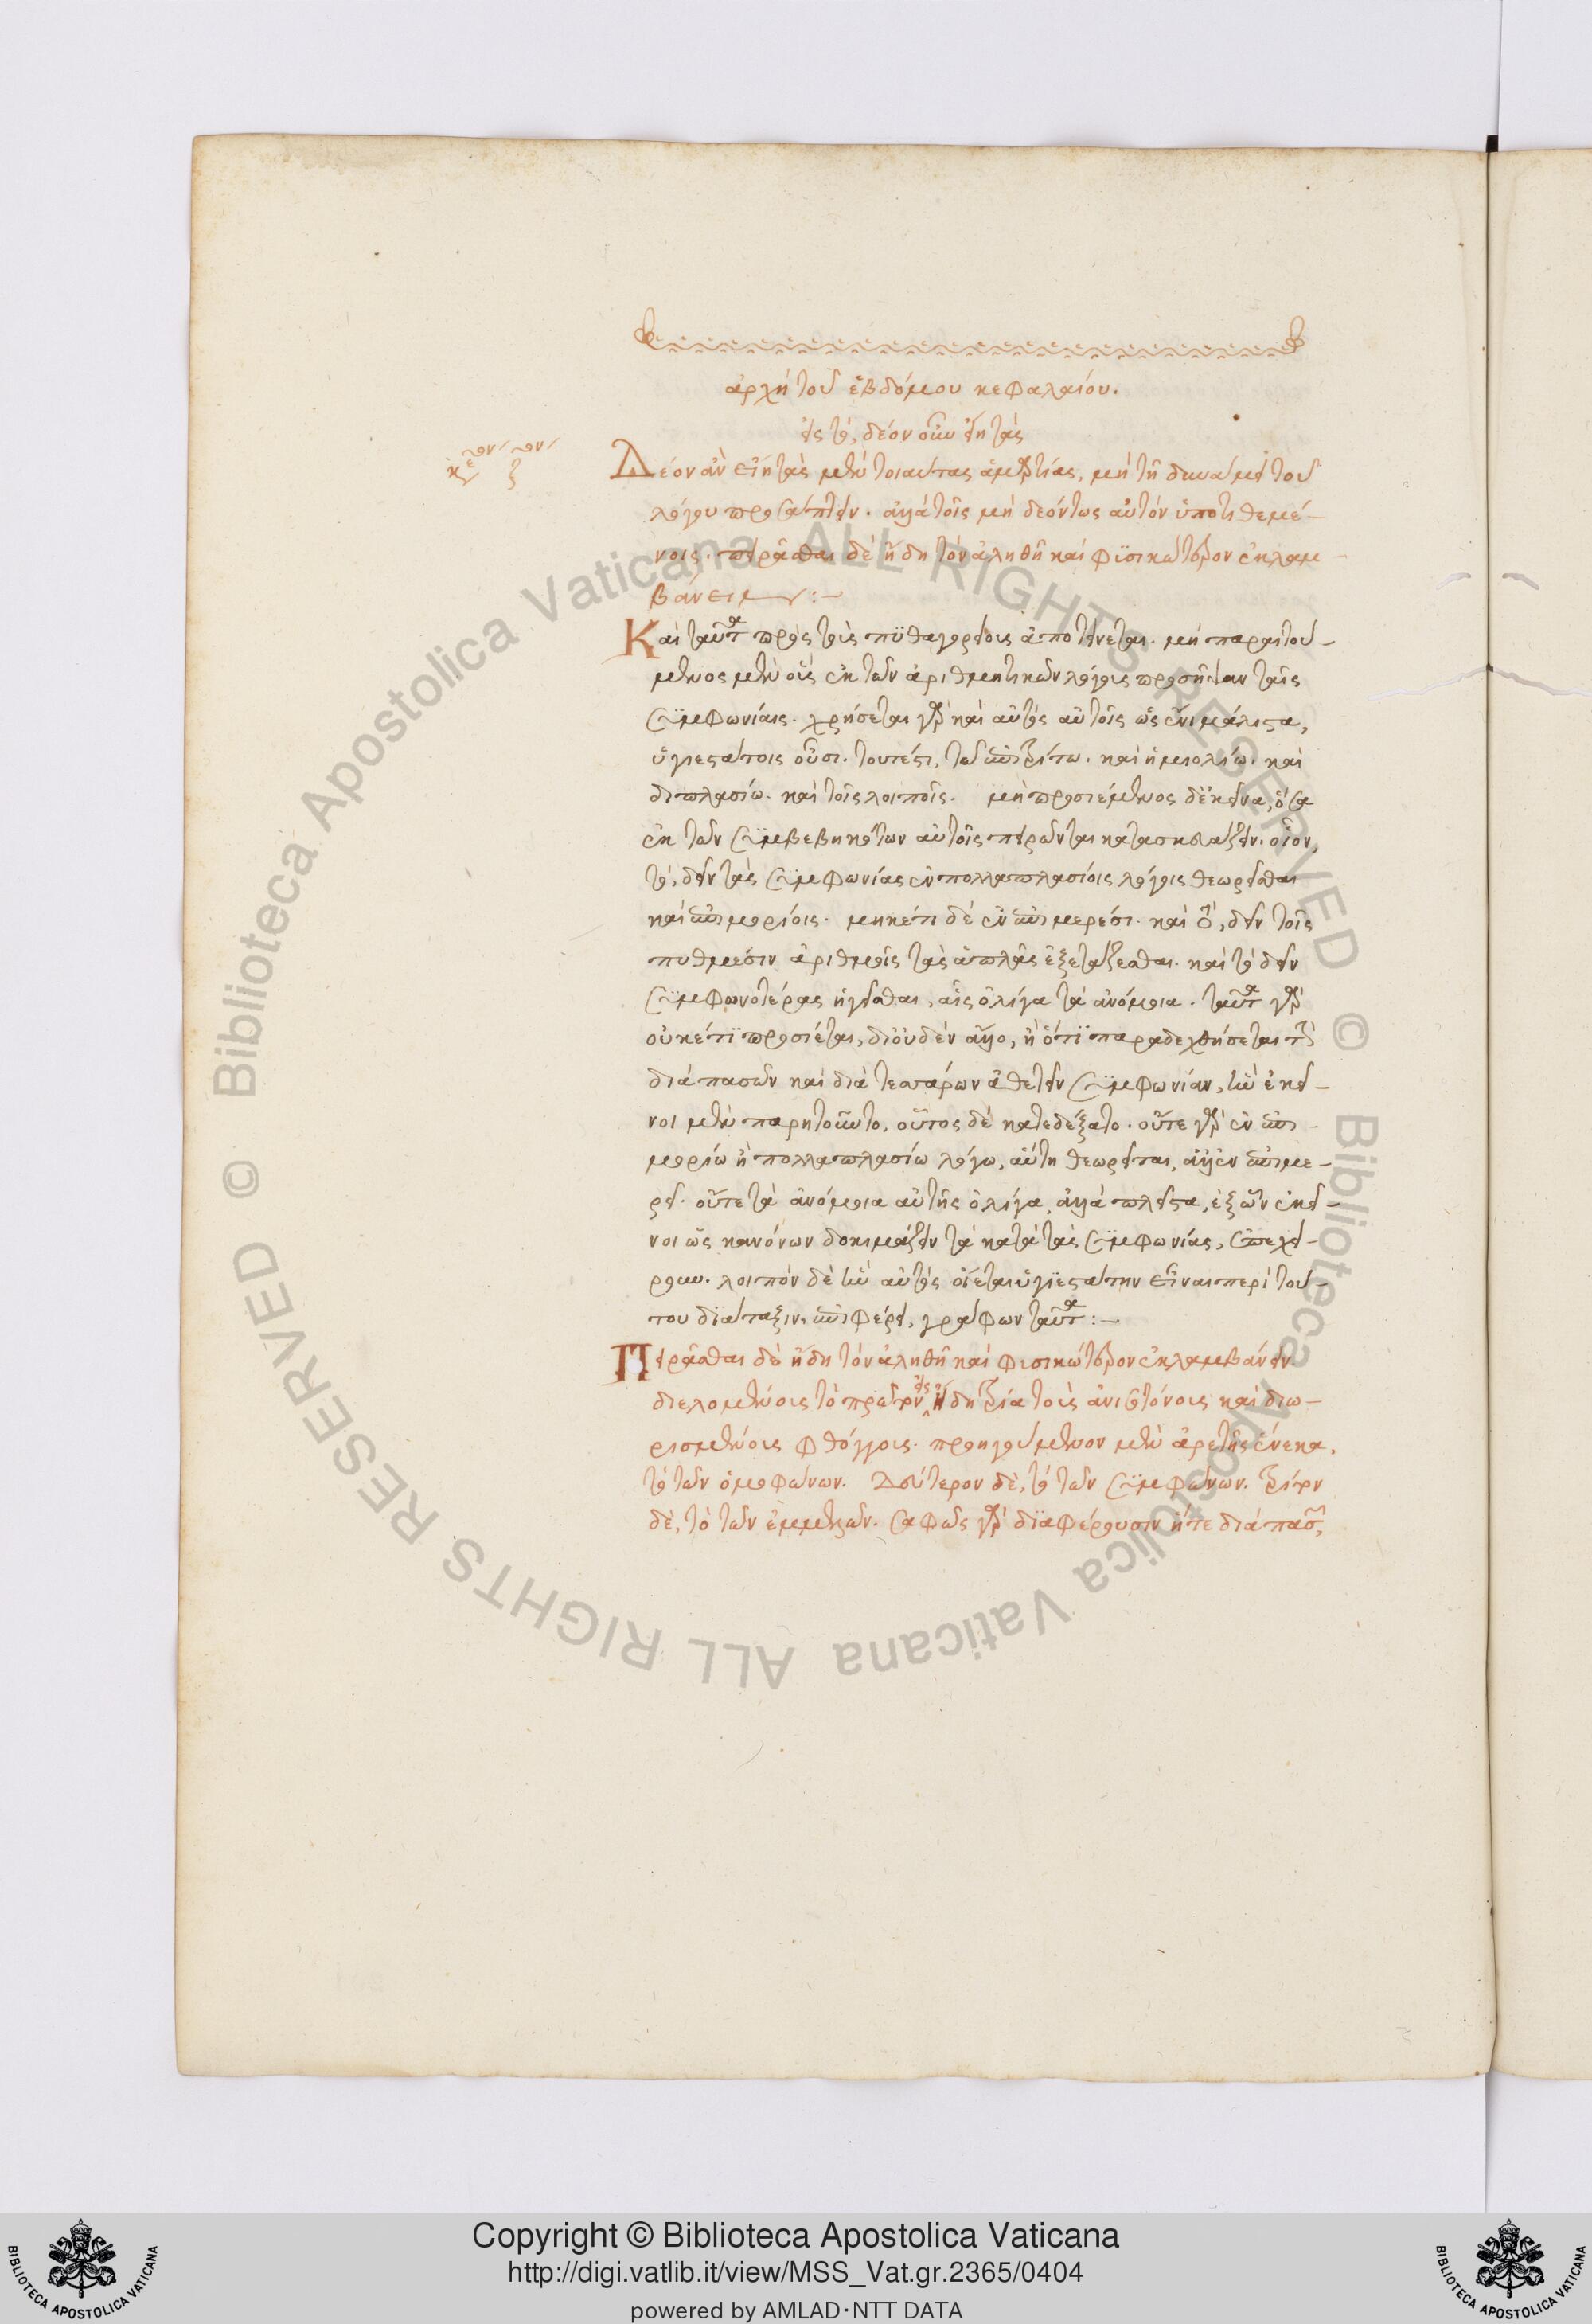 ἀρχὴ τοῦ ἑβδόμου κεφαλαίου.
εἰς τὸ, δέον οὖν εἴη τὰς
Δέον ἂν εἴη τὰς μὲν τοιαύτας ἁμαρτίας, μὴ τῇ δυνάμει τοῦ
λόγου προσάπτειν. ἀλλὰ τοῖς μὴ δεόντως αὐτὸν ὑποτιθεμέ-
νοις. πειρᾶσθαι δὲ ἤδη τὸν ἀληθῆ καὶ φϋσικώτερον ἐκλαμ-
βάνειν:-
Καὶ ταῦτα πρὸς τοὺς πϋθαγορείους ἀποτείνεται. μὴ παραιτού-
μενος μὲν οἷς ἐκ τῶν ἀριθμητικῶν λόγοις προσῆψαν ταῖς
συμφωνίαις. χρήσεται γὰρ καὶ αὐτὸς αὐτοῖς ὡς ἔνι μάλιστα,
ὑγιεστάτοις οὖσι. τουτέστι, τῷ ἐπιτρίτω. καὶ ἡμιολίω. καὶ
διπλασίω. καὶ τοῖς λοιποῖς. μὴ προσιέμενος δὲ ἐκεῖνα, ὅσα
ἐκ τῶν συμβεβηκότων αὐτοῖς πειρῶνται κατασκευάζειν. οἷον,
τὸ, δεῖν τὰς συμφωνίας ἐν πολλαπλασίοις λόγοις θεωρεῖσθαι
καὶ ἐπιμορίοις. μηκέτι δὲ ἐν ἐπιμερέσι. καὶ τὸ, δεῖν τοῖς
πυθμέσιν ἀριθμοῖς τὰς ἁπλᾶς ἐξετάζεσθαι. καὶ τὸ δεῖν
συμφωνοτέρας ἡγεῖσθαι, αἷς ὀλίγα τὰ ἀνόμοια. ταῦτα γὰρ
οὐκέτϊ προσίεται, δι' οὐδὲν ἄλλο, ἢ ὅτϊ παραδεχθήσεται τὴν
διὰ πασῶν καὶ διὰ τεσσάρων ἀθετεῖν συμφωνίαν, ἣν ἐκεῖ-
νοι μὲν παρῃτοῦντο, οὗτος δὲ κατεδέξατο. οὔτε γὰρ ἐν ἐπι-
μορίω ἢ πολλαπλασίω λόγω, αὕτη θεωρεῖται, ἀλλ' ἐν ἐπιμε-
ρεῖ. οὔτε τὰ ἀνόμοια αὐτῆς ὀλίγα, ἀλλὰ πλεῖστα, ἐξ ὧν ἐκεῖ-
νοι ὡς κανόνων δοκιμάζειν τὰ κατὰ τὰς συμφωνίας, ἐπεχεί-
ρουν. λοιπὸν δὲ ἣν αὐτὸς οἴεται ὑγιεστάτην εἶναι περὶ τού-
του διάταξιν, ἐπιφέρει, γράφων ταῦτα:-
Πειρᾶσθαι δὲ ἤδη τὸν ἀληθῆ καὶ φυσικώτερον ἐκλαμβάνειν
διελομένοις τὸ πρῶτον εἰς εἴδη τρία τοὺς ἀνισοτόνους καὶ διω-
ρισμένους φθόγγους. προηγούμενον μὲν ἀρετῆς ἕνεκα,
τὸ τῶν ὁμοφώνων. Δεύτερον δὲ, τὸ τῶν συμφώνων. τρίτον
δὲ, τὸ τῶν ἐμμελῶν. σαφῶς γὰρ διαφέρουσιν ἥτε διὰ πασῶν,
Copyright © Biblioteca Apostolica Vaticana
http://digi.vatlib.it/view/MSS_Vat.gr.2365/0404
powered by AMLAD·NTT DATA
© Biblioteca Apostolica Vaticana ALL RIGHTS RESERVED
© Biblioteca Apostolica Vaticana ALL RIGHTS RESERVED
BIBLIOTECA APOSTOLICA VATICANA
BIBLIOTECA APOSTOLICA VATICANA